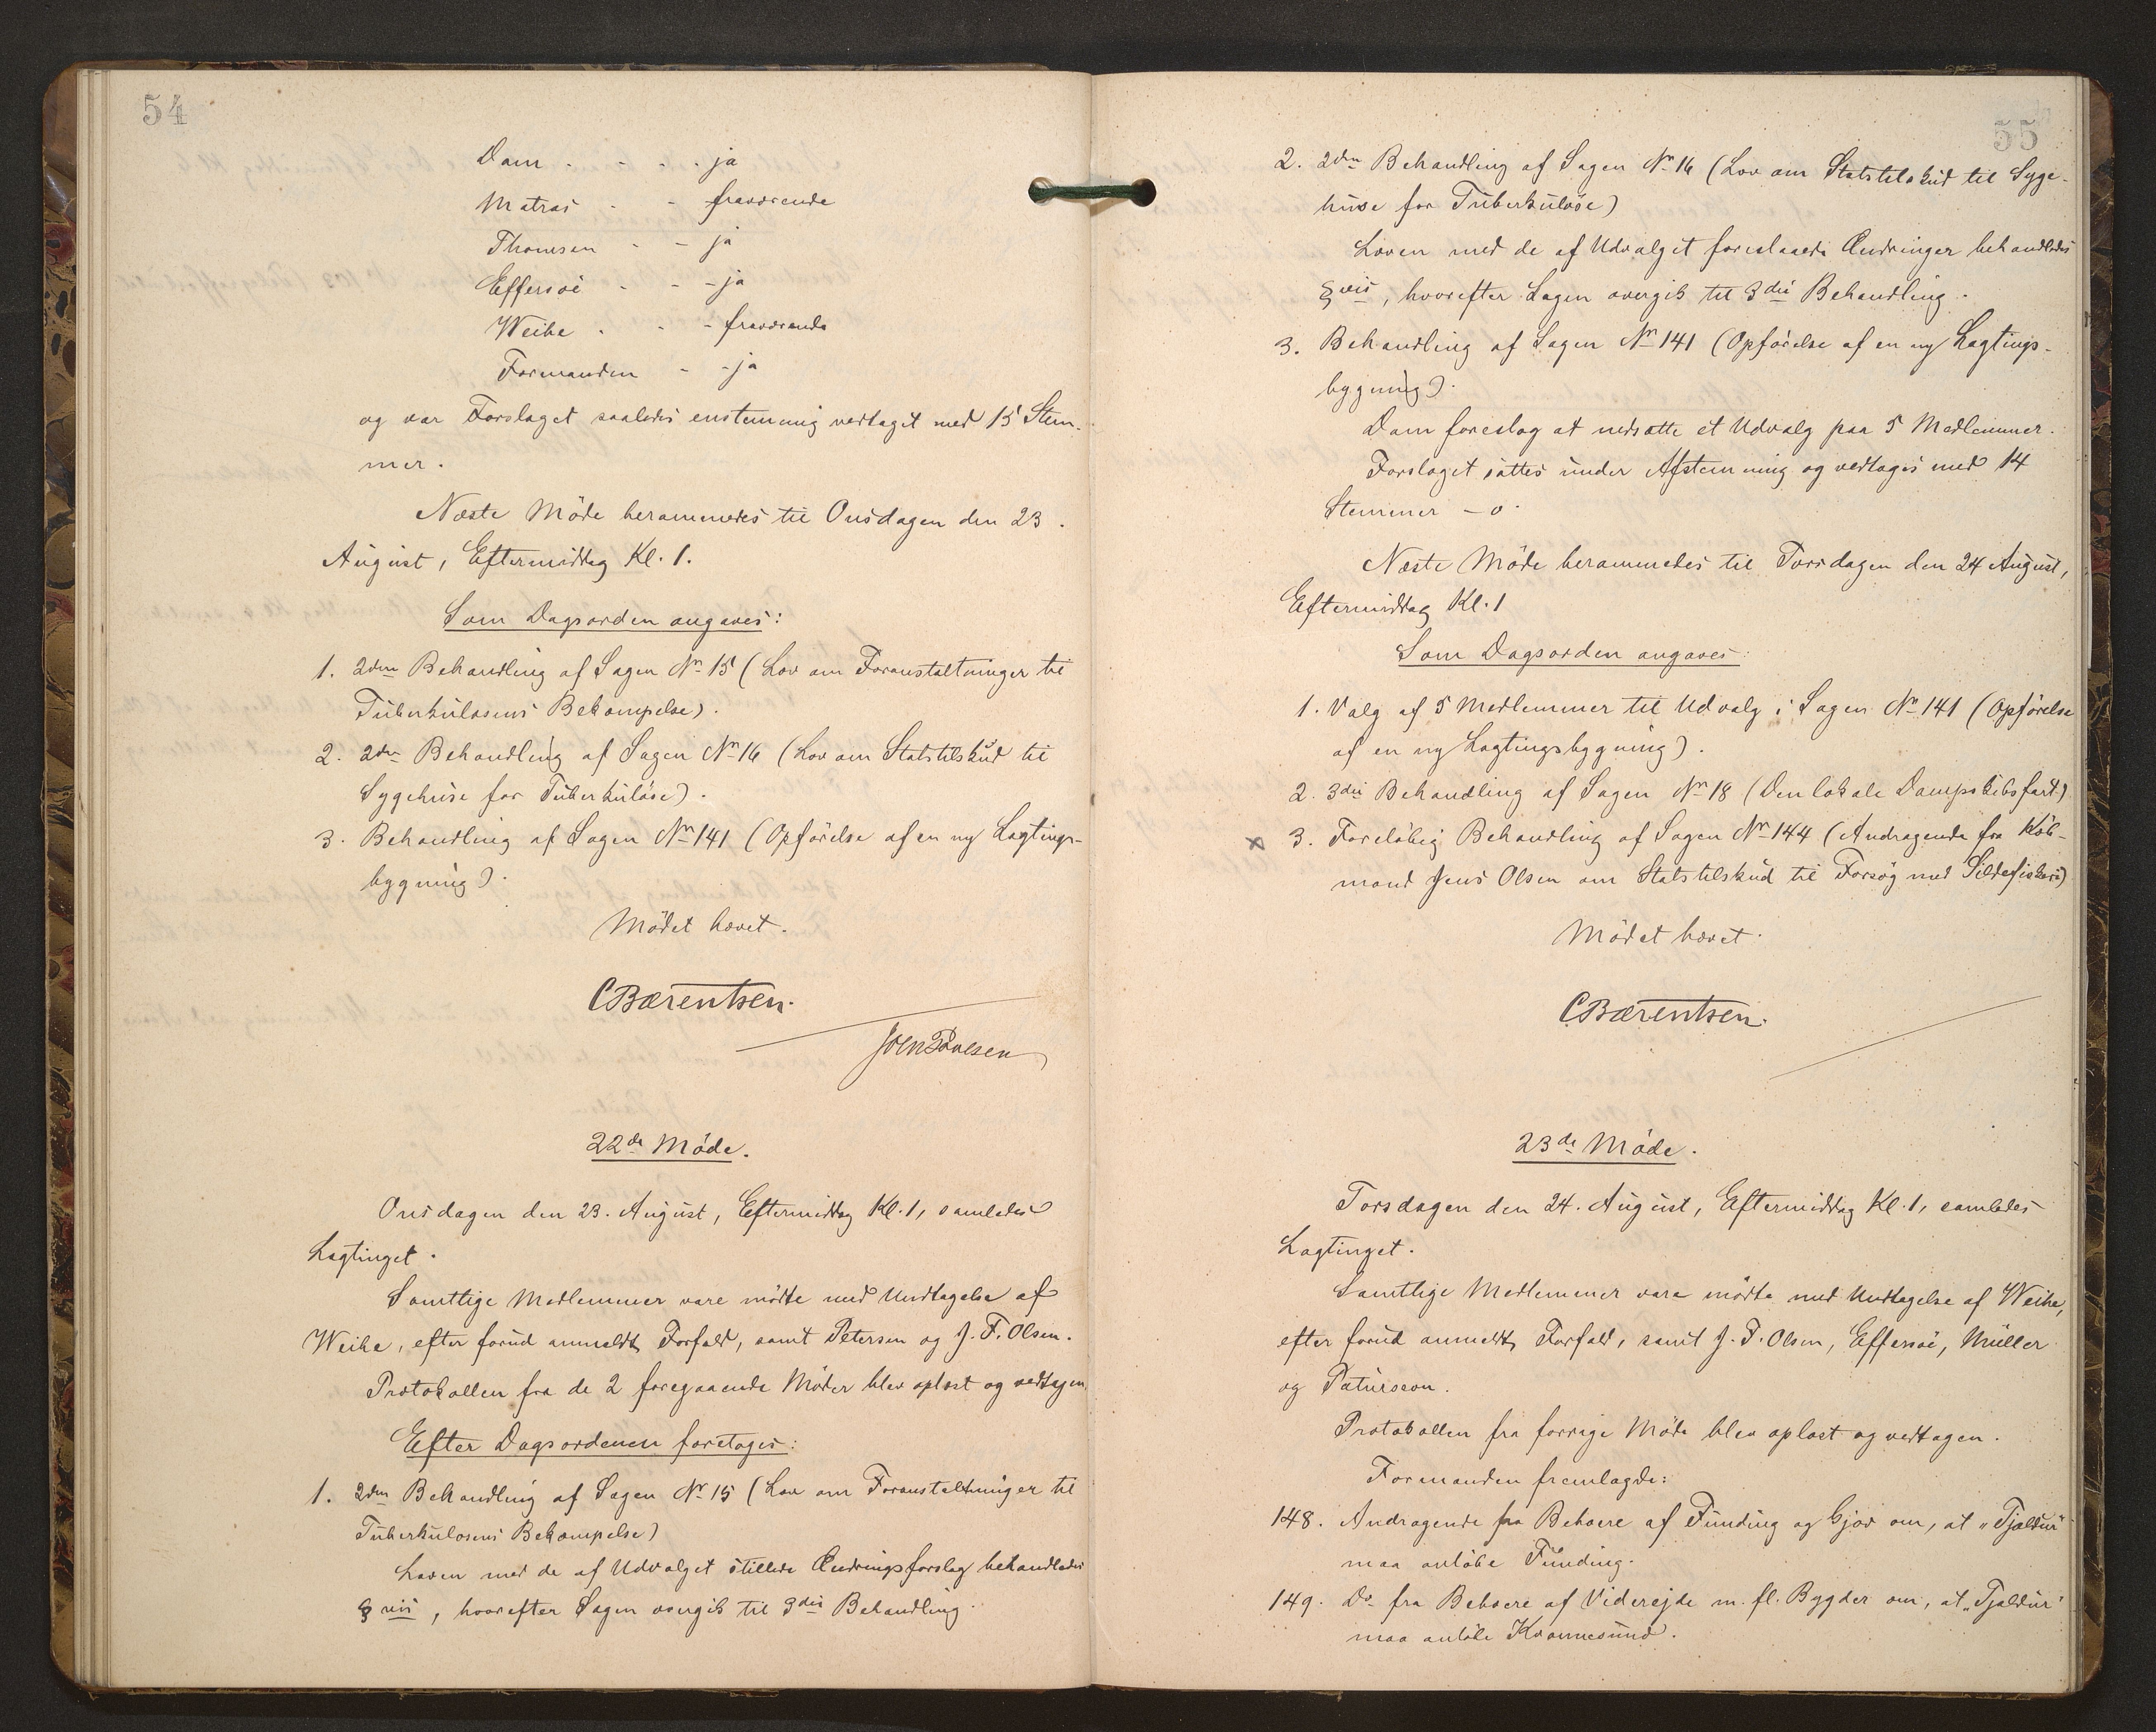 54
Dam - - - - ja
Matras - - fraværende
Thomsen - - ja
Effersöe - - - ja
Weihe - - - fraværende
Formanden - - ja
og var Forslaget saaledes enstemmig vedtaget med 15 Stem-
mer.
Næste Möde berammedes til Onsdagen den 23.
August, Eftermiddag Kl. 1.
Som Dagsorden angaves:
1. 2den Behandling af Sagen Nr 15 (Lov om Foranstaltninger til
Tuberkulosens Bekæmpelse).
2. 2den Behandling af Sagen Nr 16 (Lov om Statstilskud til
Sygehuse for Tuberkulöse).
3. Behandling af Sagen Nr 141 (Opförelse af en ny Lagtings-
bygning).
Mödet hævet.
CBærentsen.
22de Möde.
Onsdagen den 23. August, Eftermiddag Kl. 1, samledes
Lagtinget.
Samtlige Medlemmer vare mödte med Undtagelse af
Weihe, efter forud anmeldt Forfald, samt Petersen og J. F. Olsen.
Protokollen fra de 2 foregaaende Möder blev oplæst og vedtagen.
Efter Dagsordenen foretoges:
1. 2den Behandling af Sagen Nr 15 (Lov om Foranstaltninger til
Tuberkulosens Bekæmpelse)
Loven med de af Udvalget stillede Ændringsforslag behandledes
§ vis, hvorefter Sagen overgik til 3die Behandling.
55
2. 2den Behandling af Sagen Nr 16 (Lov om Statstilskud til Syge-
huse for Tuberkulöse)
Loven med de af Udvalget foreslaaede Ændringer behandledes
§ vis, hvorefter Sagen overgik til 3die Behandling.
3. Behandling af Sagen Nr 141 (Opförelse af en ny Lagtings-
bygning).
Dam foreslog at nedsætte et Udvalg paa 5 Medlemmer.
Forslaget sattes under Afstemning og vedtoges med 14
Stemmer - 0.
Næste Möde berammedes til Torsdagen den 24 August,
Eftermiddag Kl. 1
Som Dagsorden angaves:
1. Valg af 5 Medlemmer til Udvalg i Sagen Nr 141 (Opförelse
af en ny Lagtingsbygning).
2. 3die Behandling af Sagen Nr 18 (Den lokale Dampskibsfart.)
x 3. Forelöbig Behandling af Sagen Nr 144 (Andragende fra Köb-
mand Jens Olsen om Statstilskud til Forsög med Sildefiskeri)
Mödet hævet.
CBærentsen.
23de Möde.
Torsdagen den 24. August, Eftermiddag Kl. 1, samledes
Lagtinget.
Samtlige Medlemmer vare mödte med Undtagelse af Weihe,
efter forud anmeldt Forfald, samt J. F. Olsen, Effersöe, Müller
og Patursson.
Protokollen fra forrige Möde blev oplæst og vedtagen.
Formanden fremlagde:
148. Andragende fra Beboere af Funding og Gjov om, at "Tjaldur"
maa anlöbe Funding.
149. Do fra Beboere af Viderejde m. fl. Bygder om, at "Tjaldur"
maa anlöbe Kvannesund.